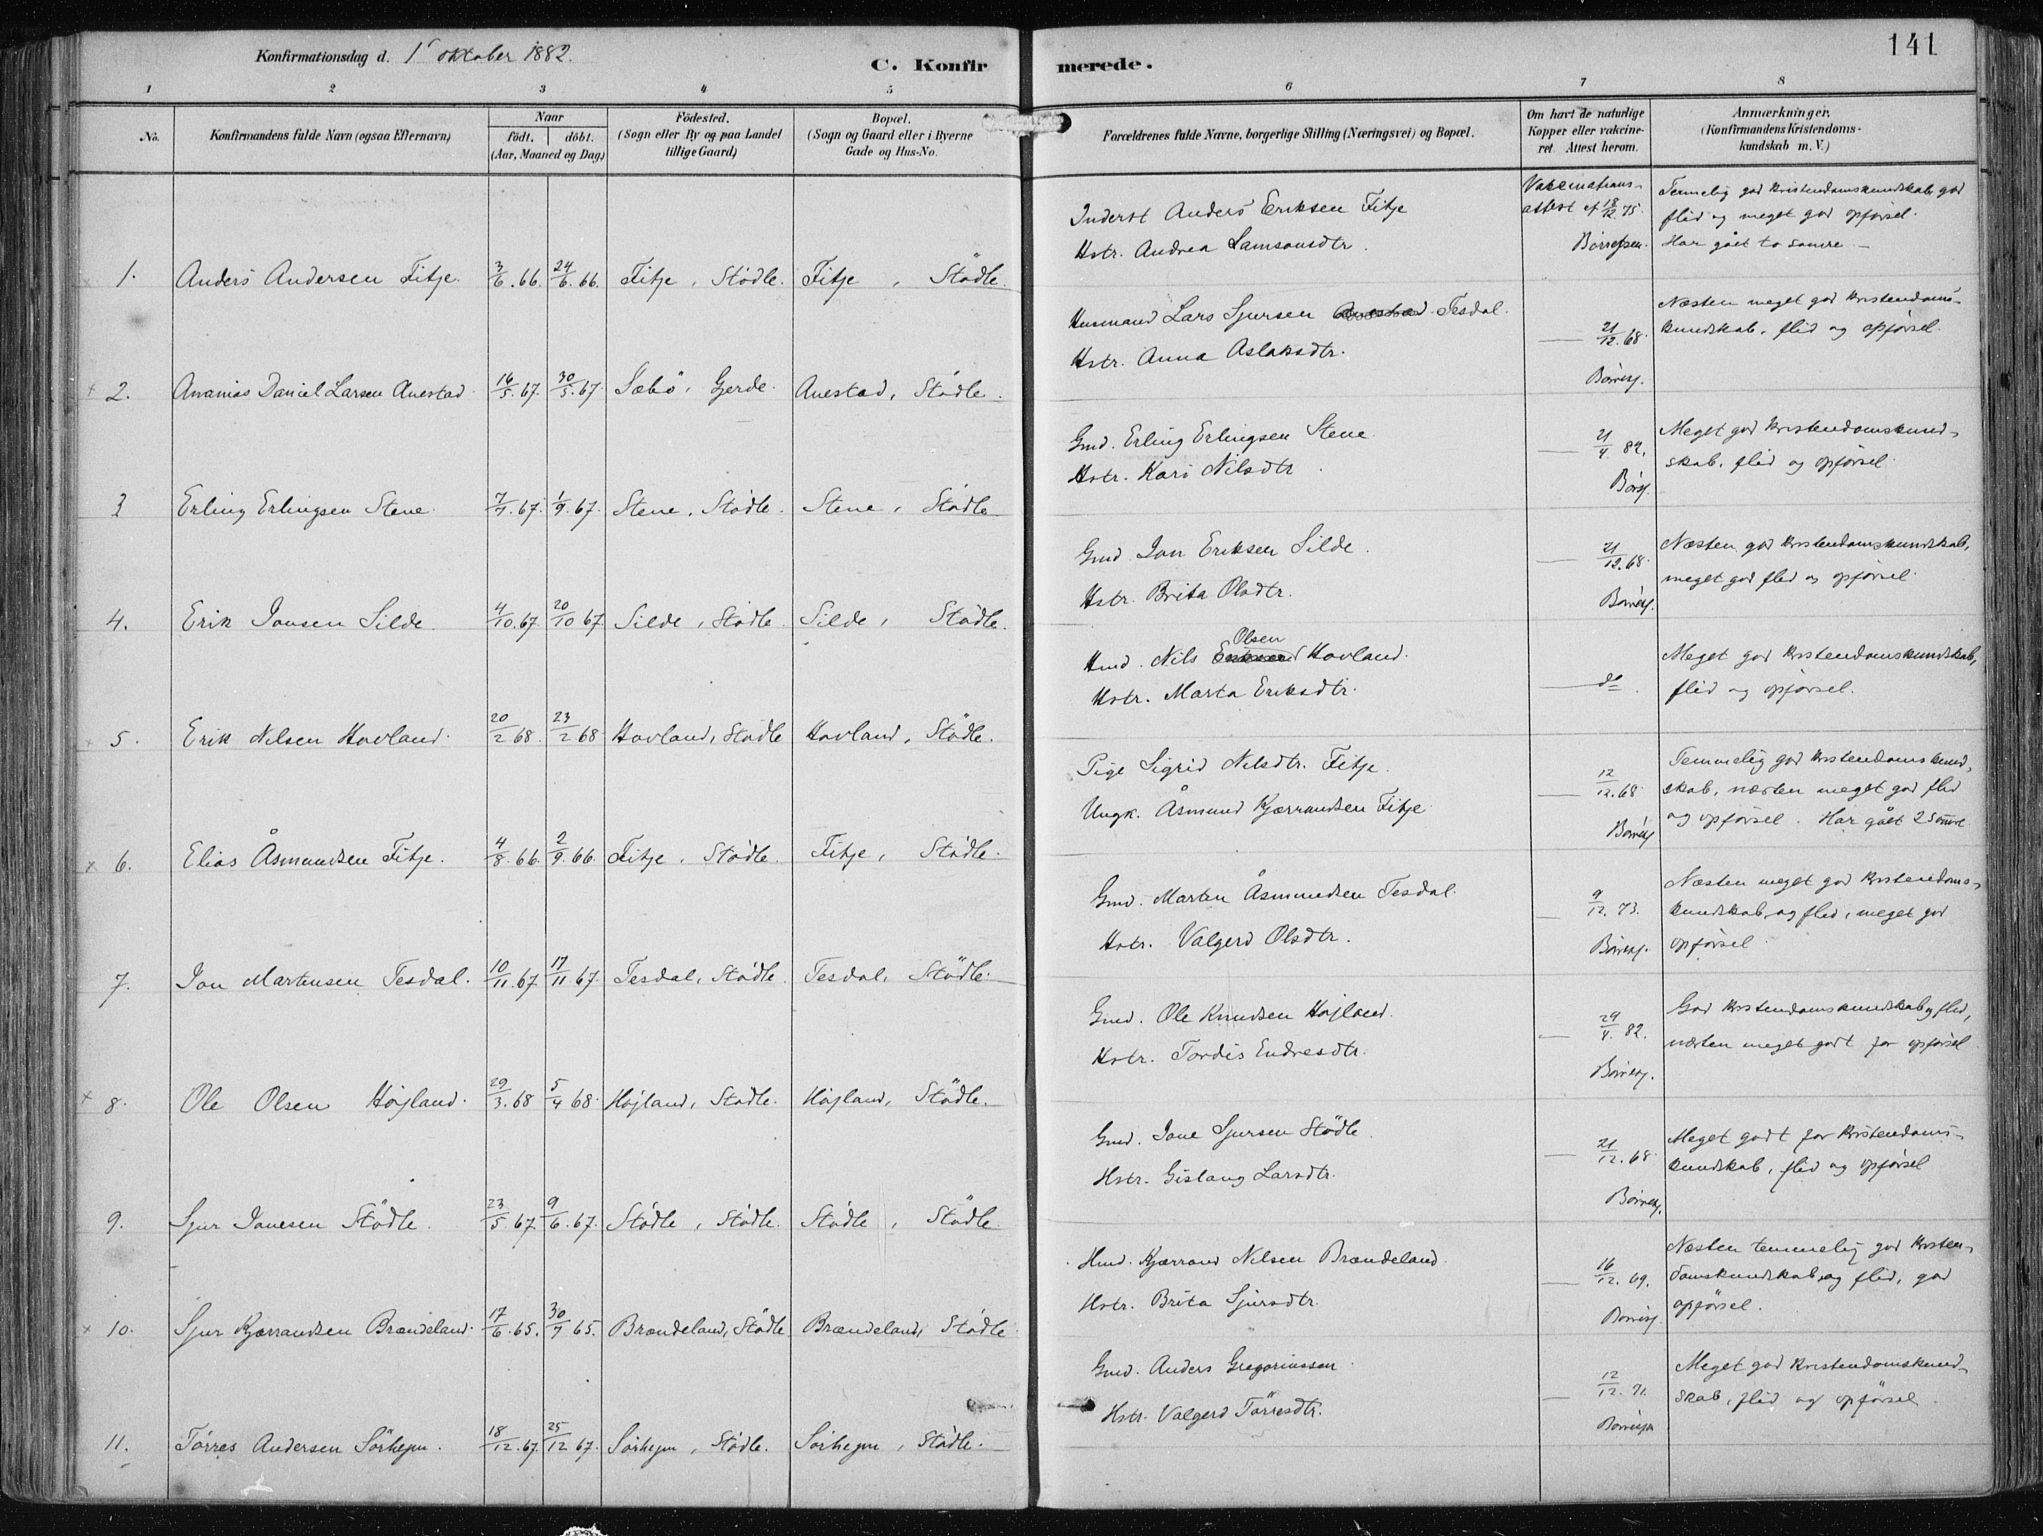 141
Konfirmationsdag d. 1ste oktober 1882.
C. Konfirmerede.
1 2 3 4 5 6 7 8
No.
Konfirmandens fulde Navn (ogsaa Efternavn)
Naar
født. døbt.
(Aar, Maaned og Dag)
Födested.
(Sogn eller By og paa Landet
tillige Gaard)
Bopæl.
(Sogn og Gaard eller i Byerne
Gade og Hus-No.
Forældrenes fulde Navne, borgerlige Stilling (Næringsvei) og Bopæl.
Om havt de naturlige
Kopper eller vakcine-
ret. Attest herom.
Anmærkninger.
(Konfirmandens Kristendoms-
kundskab m. V.)
1. Anders Andersen Fitje. 3/6.66. 24/6.66. Fitje, Stödle. Fitje, Stödle.
Inderst Anders Eriksen Fitje
Hstr. Andrea Samsonsdtr.
Vakcinations-
attest af 18/12 75.
Temmelig god kristendomskundskab, god
flid og meget god opførsel.
Har gået to somre.
2. Ananias Daniel Larsen Anestad. 16/5.67. 30/5.67 Sæbö, Gerde. Anestad, Stödle.
Husmand Lars Sjursen Tesdal.
Hstr. Anna Aslaksdtr.
21/12.68.
Næsten meget god kristendoms-
kundskab, flid og opførsel.
3 Erling Erlingsen Stene. 7/7.67. 1/9.67. Stene, Stödle. Stene, Stödle
Gmd. Erling Erlingsen Stene.
Hstr. Kari Nilsdtr.
21/4.82.
Meget god kristendomskund-
skab, flid og opførsel.
4. Erik Jonsen Silde. 4/10.67. 20/10 67. Silde, Stödle. Silde, Stödle.
Gmd. Jon Eriksen Silde.
Hstr. Brita Olsdtr.
21/12.68.
Næsten god kristendomskundskab,
meget god flid og opførsel.
5. Erik Nilsen Hovland. 20/2 68. 23/2 68 Hovland, Stödle Hovland, Stödle.
Olsen
Hmd. Nils Hovland.
Hstr. Marta Eriksdtr.
do
Meget god kristendomskundskab,
flid og opførsel.
6. Elias Åsmundsen Fitje. 4/8.66. 2/9.66. Fitje, Stödle. Fitje, Stödle.
Pige Sigrid Nilsdtr. Fitje.
Ungk. Åsmund Kjærrandsen Fitje.
12/12.68.
Temmelig god kristendomskund-
skab, næsten meget god flid
og opførsel. Har gået 2 somre.
7. Jon Martensen Tesdal. 10/11.67. 17/11 67. Tesdal, Stödle. Tesdal, Stödle.
Gmd. Marten Åsmundsen Tesdal.
Hstr. Valgerd Olsdtr.
9/12.73.
Næsten meget god kristendoms-
kundskab og flid, meget god
opførsel.
8. Ole Olsen Højland. 29/3.68 5/4 68. Højland, Stödle. Højland, Stödle.
Gmd. Ole Knudsen Højland.
Hstr. Tordis Endresdtr.
29/4.82.
God kristendomskundskab og flid,
næsten meget godt for opførsel
9. Sjur Jonesen Stödle. 23/5.67. 9/6.67. Stödle, Stödle. Stödle, Stödle.
Gmd. Jone Sjursen Stödle.
Hstr. Gislaug Larsdtr.
21/12.68.
Meget godt for kristendoms-
kundskab, flid og opførsel
10. Sjur Kjærrandsen Brændeland. 17/6.65. 30/7.65. Brændeland, Stödle Brændeland, Stödle
Hmd. Kjærrand Nilsen Brændeland.
Hstr. Brita Sjursdtr.
16/12.69.
Næsten temmelig god kristen-
domskundskab og flid, god
opførsel.
11. Törres Andersen Sörhejm. 18/12.67. 25/12 67. Sörhejm, Stödle. Sörhejm, Stödle.
Gmd. Anders Gregoriussen.
Hstr. Valgerd Törresdtr.
12/12.71.
Meget god kristendomskund-
skab, flid og opførsel.